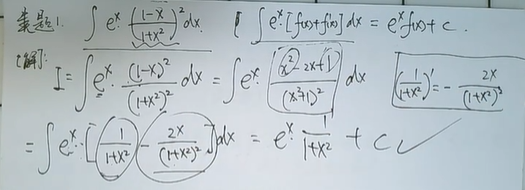 类题1. ∫ e^x (\frac{1-x}{1+x^2})^2 dx [ ∫ e^x [f(x)+f'(x)] dx = e^x f(x) + c.
解: I = ∫ e^x · \frac{(1-x)^2}{(1+x^2)^2} dx = ∫ e^x · \frac{x^2-2x+1}{(x^2+1)^2} dx (\frac{1}{1+x^2})' = -\frac{2x}{(1+x^2)^2}
= ∫ e^x · [\frac{1}{1+x^2} - \frac{2x}{(1+x^2)^2}] dx = e^x · \frac{1}{1+x^2} + c ✓